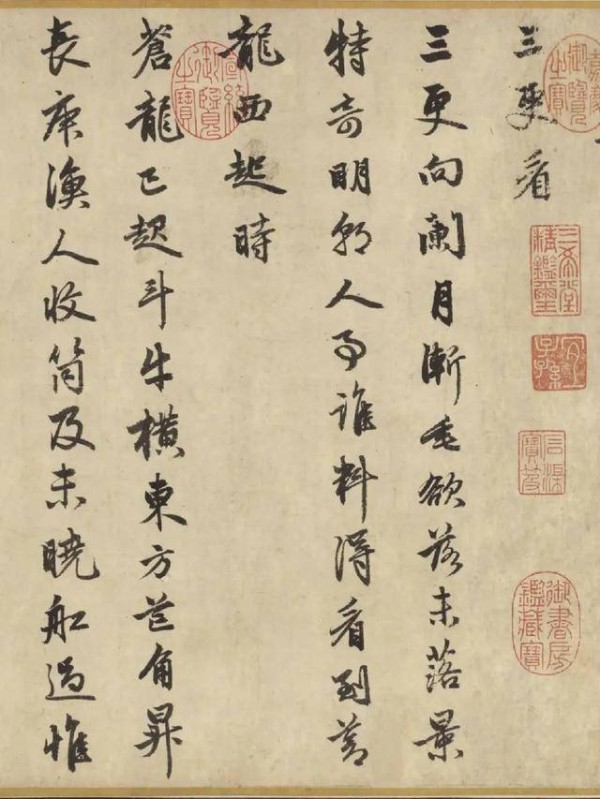 嘉慶御覽之寶
三更看
三希堂精鑑璽
宜子孫
石渠寶笈
御書房鑑藏寶
三更向闌月漸垂欲落未落景
特奇明朝人事誰料得看到蒼
龍西起時
宣統御覽之寶
蒼龍已起斗牛橫東方芒角昇
長庚漁人收筒及未曉船過惟